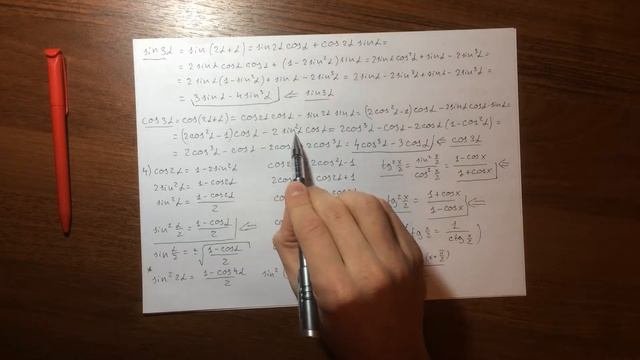 sin3α = sin(2α+α) = sin2α cosα + cos2α sinα =
= 2sinα cosα cosα + (1-2sin²α)sinα = 2sinα cos²α + sinα - 2sin³α =
= 2sinα(1-sin²α) + sinα - 2sin³α = 2sinα - 2sin³α + sinα - 2sin³α =
= 3sinα - 4sin³α ⇐ sin3α
cos3α = cos(2α+α) = cos2α cosα - sin2α sinα = (2cos²α-1)cosα - 2sinα cosα sinα =
= (2cos²α-1)cosα - 2sin²α cosα = 2cos³α - cosα - 2cosα(1-cos²α) =
= 2cos³α - cosα - 2cosα 2cos³α = 4cos³α - 3cosα ⇐ cos3α
4) cos2α = 1-2sin²α cos2α 2cos²α-1 tg²x/2 = sin²x/2 / cos²x/2 = 1-cosx / 1+cosx ⇐
2sin²α = 1-cos2α 2cos²α cos2α+1
sin²α = 1-cos2α / 2 1+cosx / 1-cosx ⇐
sin²α/2 = 1-cosα / 2 ⇐ tg x/2 = 1 / ctg x/2
sin α/2 = ±√(1-cosα / 2)
* sin²2α = 1-cos4α / 2 sin²